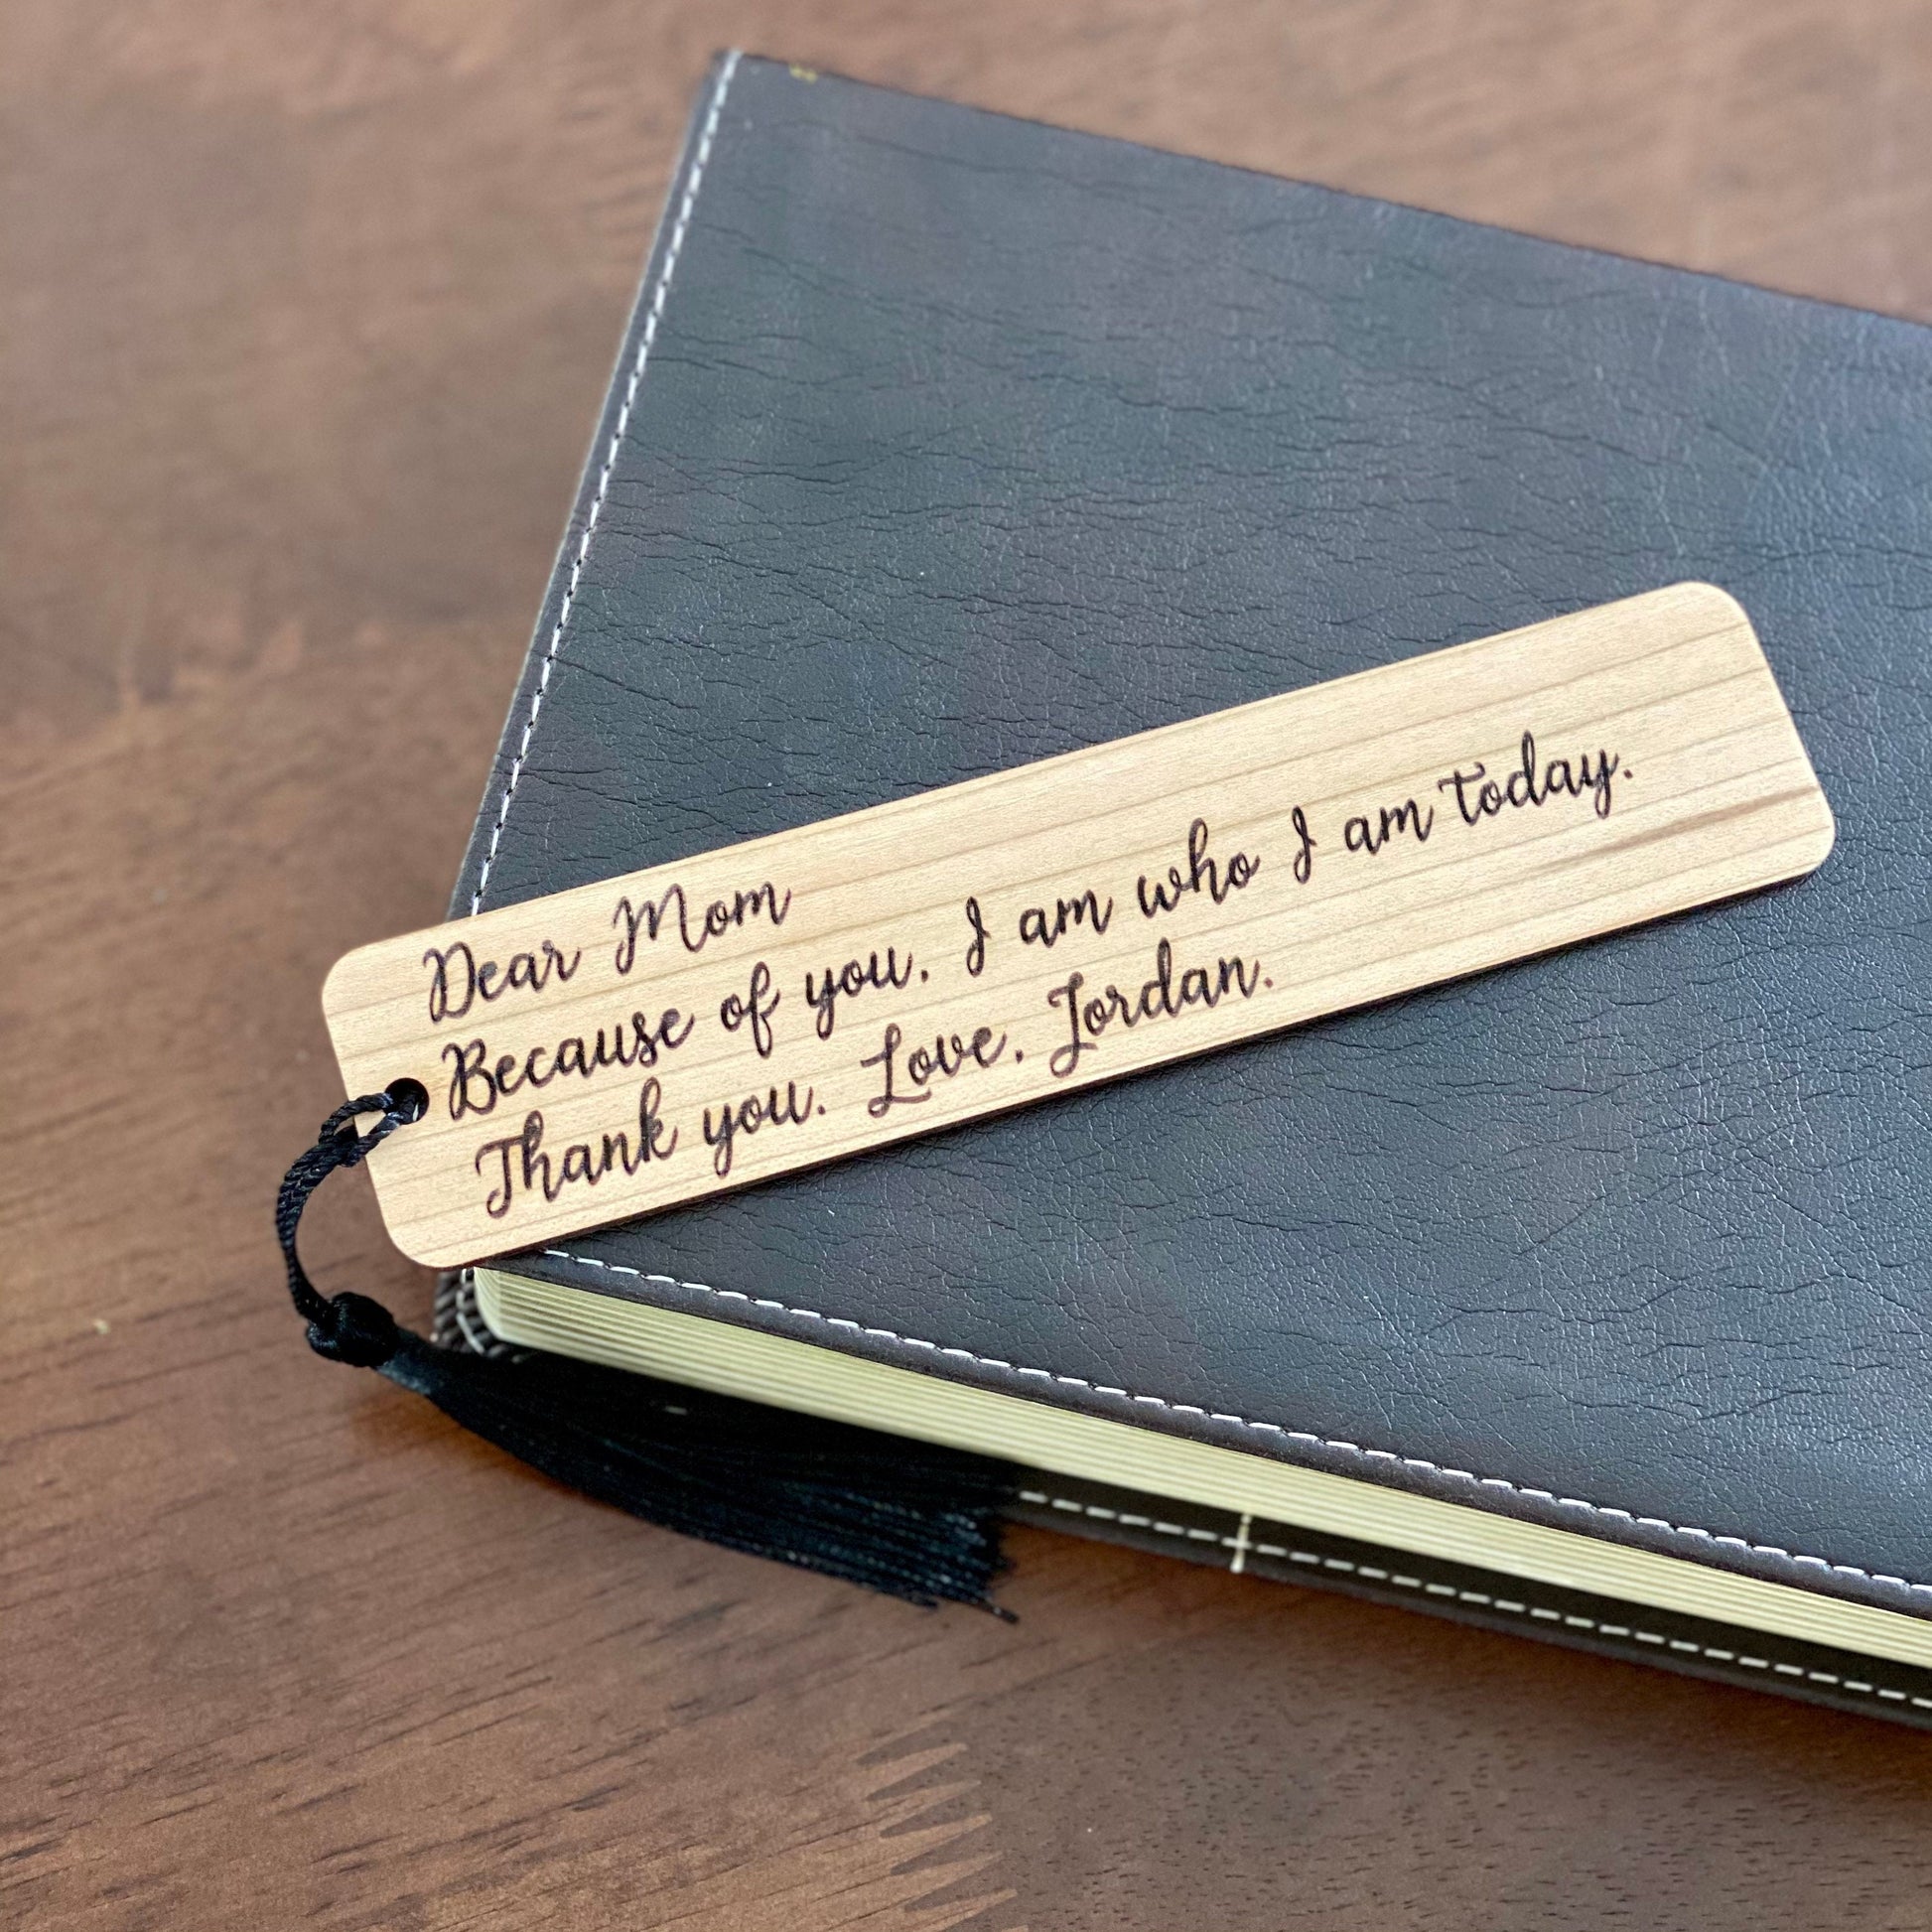 Dear Mom
Because of you, I am who I am today.
Thank you. Love, Jordan.